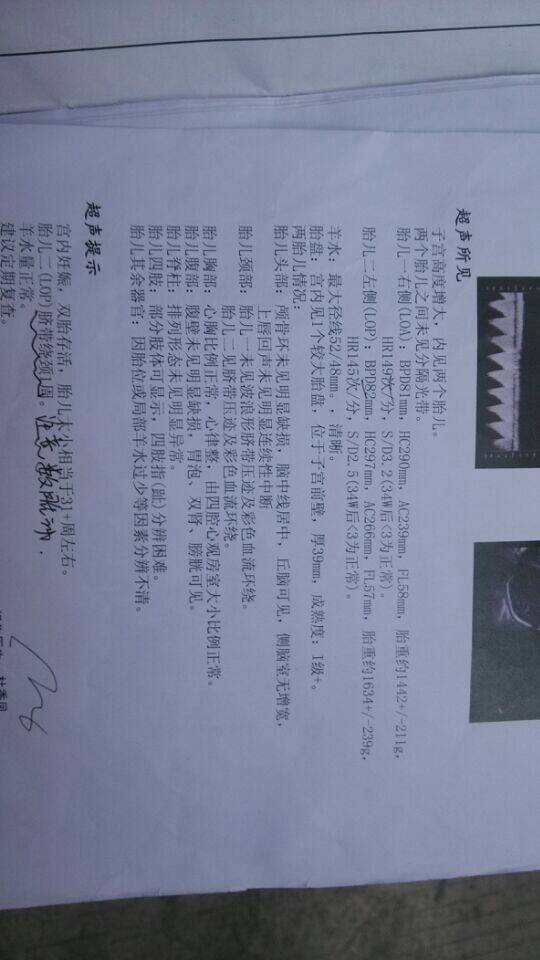 超声所见
子宫高度增大，内见两个胎儿。
两个胎儿之间未见分隔光带。
胎儿一右侧(LOA)：BPD81mm，HC290mm，AC239mm，FL58mm，胎重约1442+/-211g，
HR149次/分，S/D3.2(34W后<3为正常)。
胎儿二左侧(LOP)：BPD82mm，HC297mm，AC266mm，FL57mm，胎重约1634+/-239g，
HR145次/分，S/D2.5(34W后<3为正常)。
羊水：最大径线52/48mm。，清晰。
胎盘：宫内见1个较大胎盘，位于子宫前壁，厚39mm，成熟度：I级+。
两胎儿情况：
胎儿头部：颅骨环未见明显缺损，脑中线居中，丘脑可见，侧脑室无增宽，
上唇回声未见明显连续性中断
胎儿颈部：胎儿一未见波浪形脐带压迹及彩色血流环绕。
胎儿二见脐带压迹及彩色血流环绕。
胎儿胸部：心胸比例正常，心律整，由四腔心观房室大小比例正常。
胎儿腹部：腹壁未见明显缺损，胃泡、双肾、膀胱可见。
胎儿脊柱：排列形态未见明显异常。
胎儿四肢：部分肢体可显示，四肢指(趾)分辨困难。
胎儿其余器官：因胎位或局部羊水过少等因素分辨不清。
超声提示
宫内妊娠，双胎存活，胎儿大小相当于31+周左右。
胎儿二(LOP)脐带绕颈1周。注意数胎动．
羊水量正常。
建议定期复查。